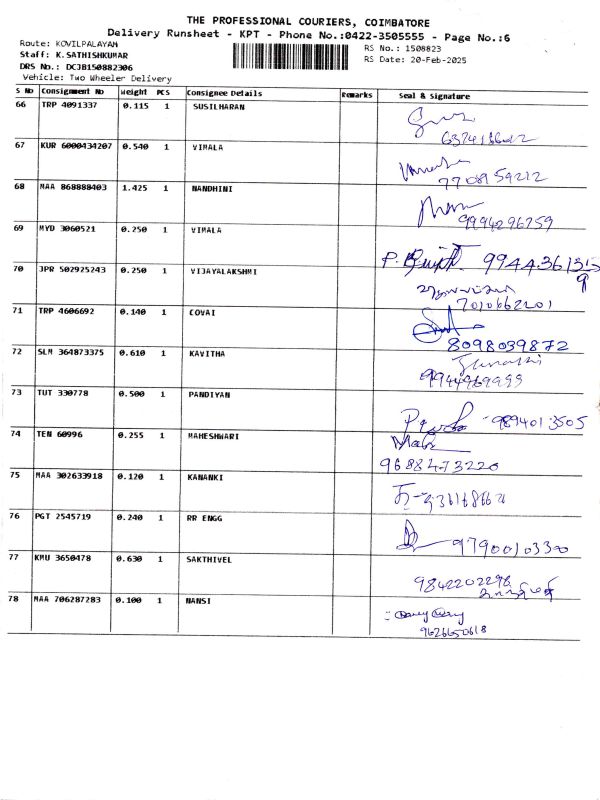 THE PROFESSIONAL COURIERS, COIMBATORE
Delivery Runsheet - KPT - Phone No.:0422-3505555 - Page No.:6
Route: KOVILPALAYAM
RS No.: 1508823
Staff: K.SATHISHKUMAR
RS Date: 20-Feb-2025
DRS No.: DCJB150882306
Vehicle: Two Wheeler Delivery
S No Consignment No Weight PCS Consignee Details Remarks Seal & Signature
66 TRP 4091337 0.115 1 SUSILHARAN
67 KUR 6000434207 0.540 1 VIMALA
7708159212
68 MAA 868888403 1.425 1 NANDHINI
9994296759
69 MYD 3060521 0.250 1 VIMALA
70 JPR 502925243 0.250 1 VIJAYALAKSHMI
7010662201
71 TRP 4606692 0.140 1 COVAI
8098039872
72 SLM 364873375 0.610 1 KAVITHA
73 TUT 330778 0.500 1 PANDIYAN
9894013505
74 TEN 60996 0.255 1 MAHESHWARI
9688473220
75 MAA 302633918 0.120 1 KANANKI
76 PGT 2545719 0.240 1 RR ENGG
97900103300
77 KMU 3650478 0.630 1 SAKTHIVEL
9842202298
78 MAA 706287283 0.100 1 NANSI
9626650618